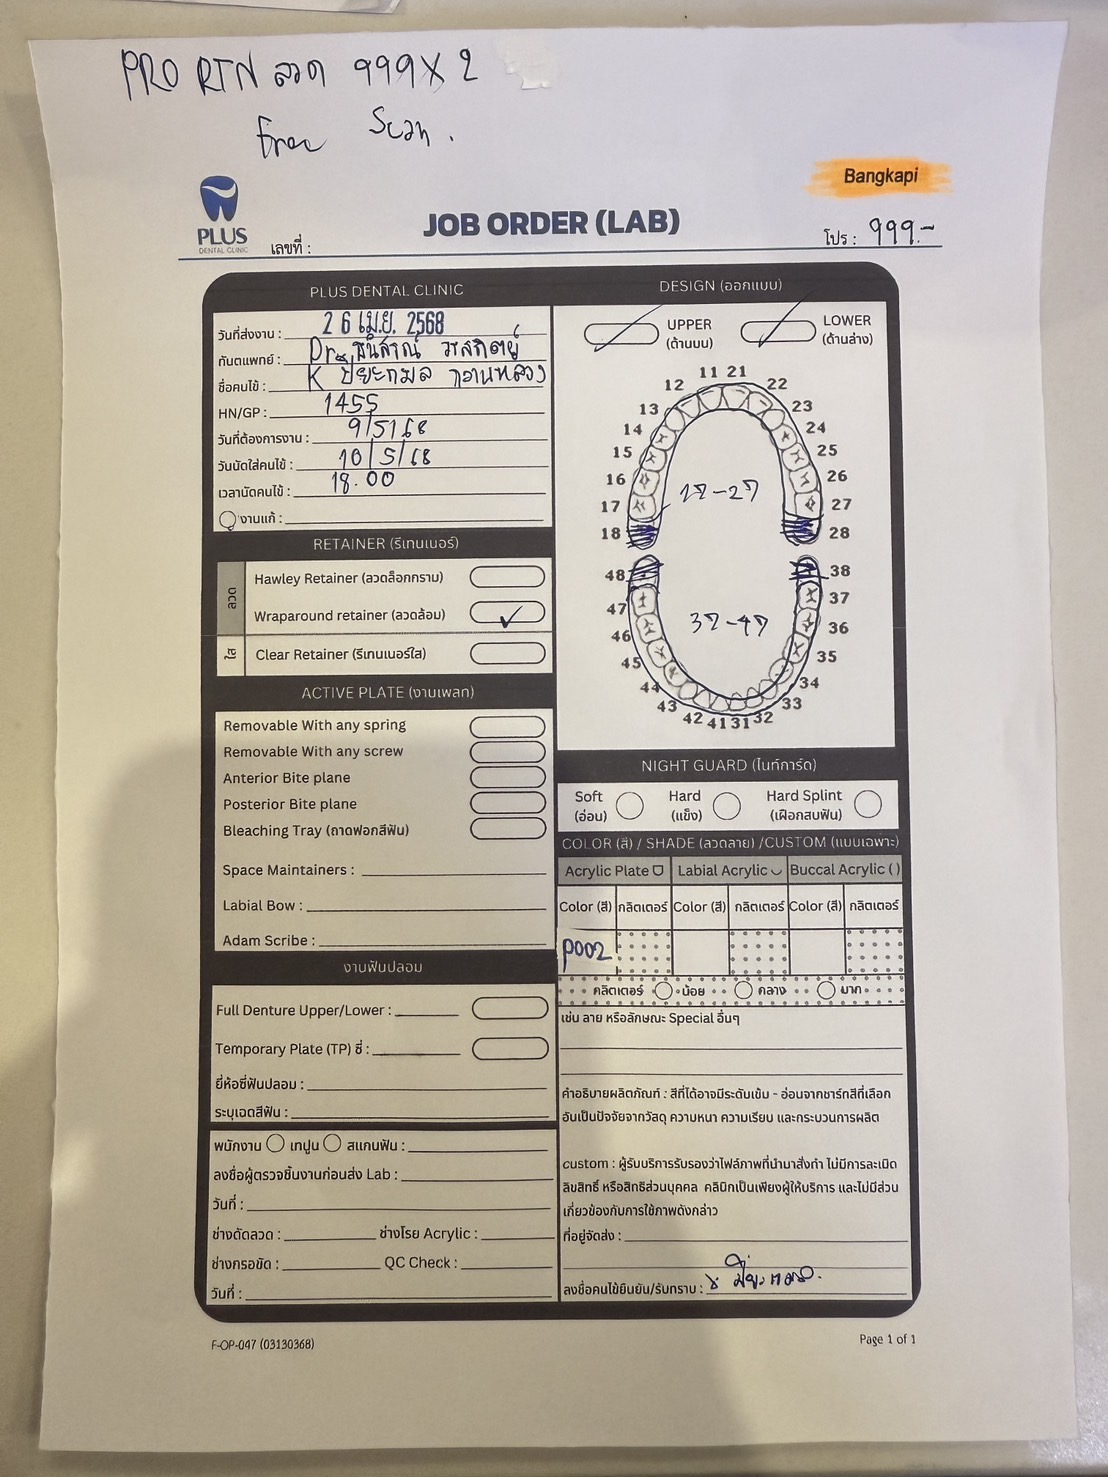 PRO RTN ลวด 999 X 2
Free Scan.
Bangkapi
PLUS
DENTAL CLINIC
JOB ORDER (LAB)
เลขที่ :
โปร : 999.-
PLUS DENTAL CLINIC
วันที่ส่งงาน : 26 เม.ย. 2568
ทันตแพทย์ : Dr.
ชื่อคนไข้ : K ปิยะกมล
HN/GP : 1455
วันที่ต้องการงาน : 9/5/68
วันนัดใส่คนไข้ : 10/5/68
เวลานัดคนไข้ : 18.00
งานแก้ :
RETAINER (รีเทนเนอร์)
ลวด
Hawley Retainer (ลวดล็อกกราม)
Wraparound retainer (ลวดล้อม)
ใส
Clear Retainer (รีเทนเนอร์ใส)
ACTIVE PLATE (งานเพลท)
Removable With any spring
Removable With any screw
Anterior Bite plane
Posterior Bite plane
Bleaching Tray (ถาดฟอกสีฟัน)
Space Maintainers :
Labial Bow :
Adam Scribe :
งานฟันปลอม
Full Denture Upper/Lower :
Temporary Plate (TP) ซี่ :
ยี่ห้อซี่ฟันปลอม :
ระบุเฉดสีฟัน :
พนักงาน เทปูน สแกนฟัน :
ลงชื่อผู้ตรวจชิ้นงานก่อนส่ง Lab :
วันที่ :
ช่างดัดลวด : ช่างโรย Acrylic :
ช่างกรอขัด : QC Check :
วันที่ :
DESIGN (ออกแบบ)
UPPER
(ด้านบน)
LOWER
(ด้านล่าง)
11 21
12 22
13 23
14 24
15 25
16 26
17 27
18 28
17-27
48 38
47 37
46 36
45 35
44 34
43 33
42 41 31 32
37-47
NIGHT GUARD (ไนท์การ์ด)
Soft
(อ่อน)
Hard
(แข็ง)
Hard Splint
(เฝือกสบฟัน)
COLOR (สี) / SHADE (ลวดลาย) /CUSTOM (แบบเฉพาะ)
Acrylic Plate Labial Acrylic Buccal Acrylic ( )
Color (สี) กลิตเตอร์ Color (สี) กลิตเตอร์ Color (สี) กลิตเตอร์
P002
กลิตเตอร์ น้อย กลาง มาก
เช่น ลาย หรือลักษณะ Special อื่นๆ
คำอธิบายผลิตภัณฑ์ : สีที่ได้อาจมีระดับเข้ม - อ่อนจากชาร์ทสีที่เลือก
อันเป็นปัจจัยจากวัสดุ ความหนา ความเรียบ และกระบวนการผลิต
custom : ผู้รับบริการรับรองว่าไฟล์ภาพที่นำมาสั่งทำ ไม่มีการละเมิด
ลิขสิทธิ์ หรือสิทธิส่วนบุคคล คลินิกเป็นเพียงผู้ให้บริการ และไม่มีส่วน
เกี่ยวข้องกับการใช้ภาพดังกล่าว
ที่อยู่จัดส่ง :
ลงชื่อคนไข้ยืนยัน/รับทราบ : x ปิยะกมล
F-OP-047 (03130368)
Page 1 of 1